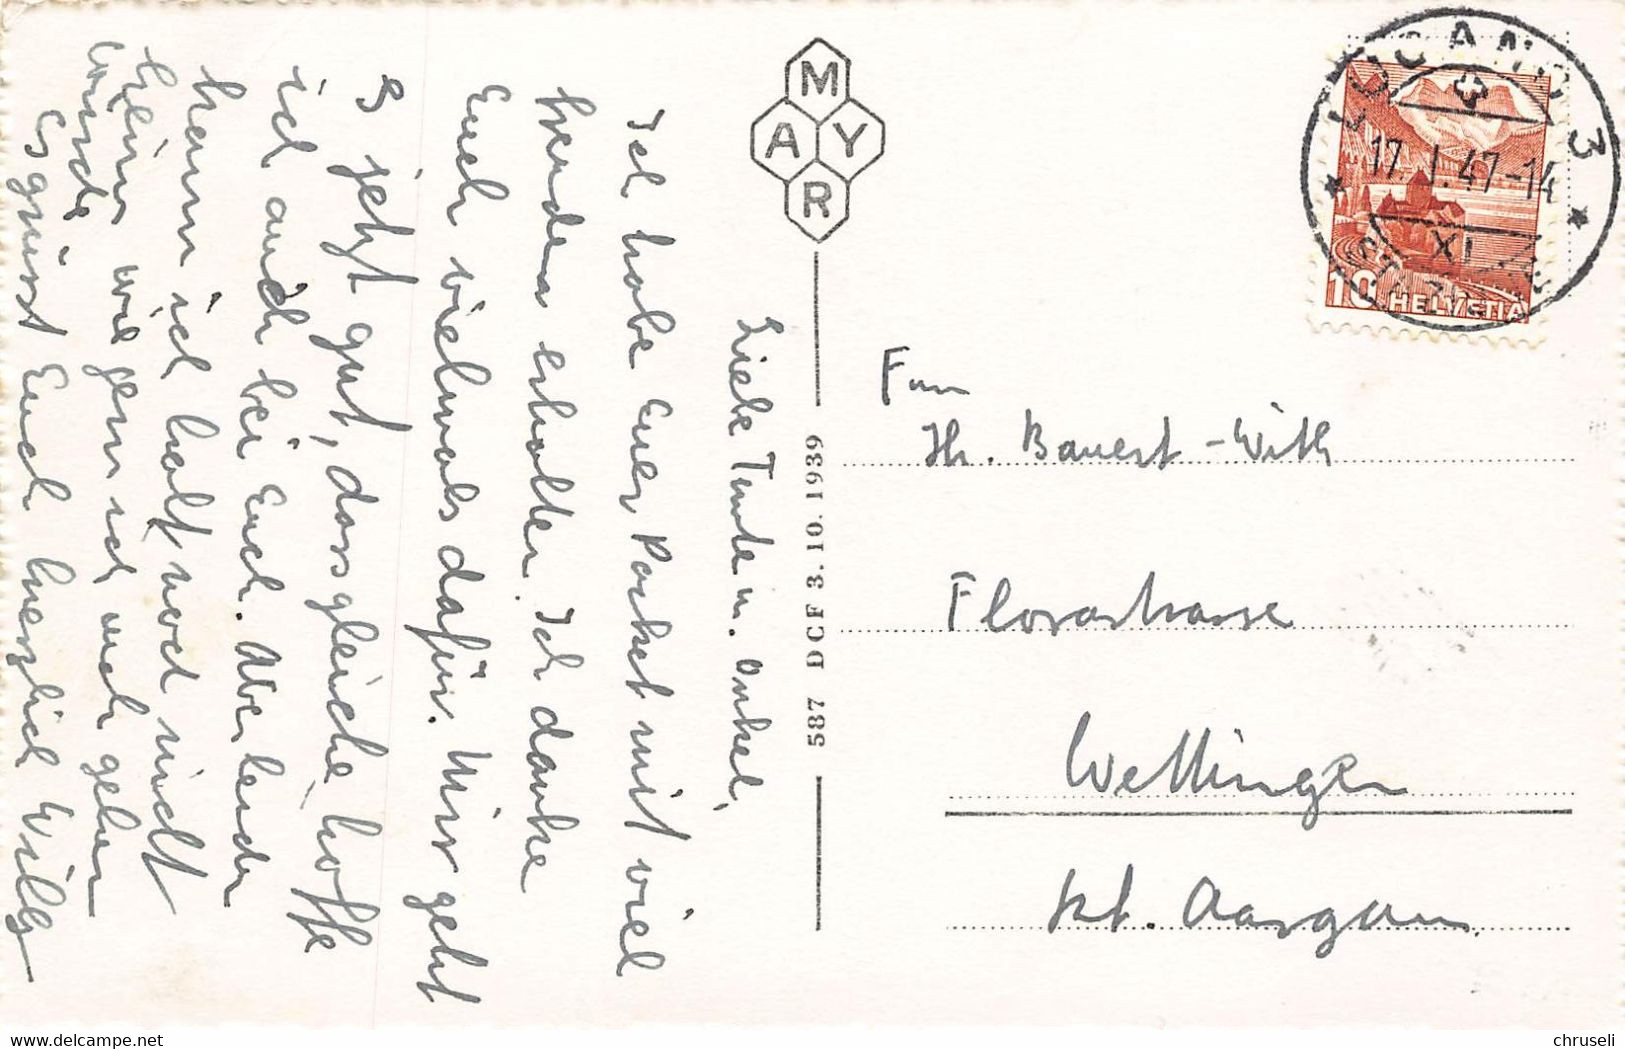 Liebe Tante u. Onkel,
Ich habe Euer Packet mit viel
Freuden erhalten. Ich danke
Euch vielmals dafür. Mir geht
s jetzt gut, dass gleiche hoffe
ich auch bei Euch. Aber leider
kann ich halt noch nicht
heim wie gern ich auch gehen
würde
Es grüsst Euch herzlich Willy
MAYR
587 DCF 3. 10. 1939
LUGANO 3
17. I. 47-14
XI
10 HELVETIA
Fam
Th. Bauert-With
Florastrasse
Wettingen
Kt. Aargau
delcampe.net
chruseli